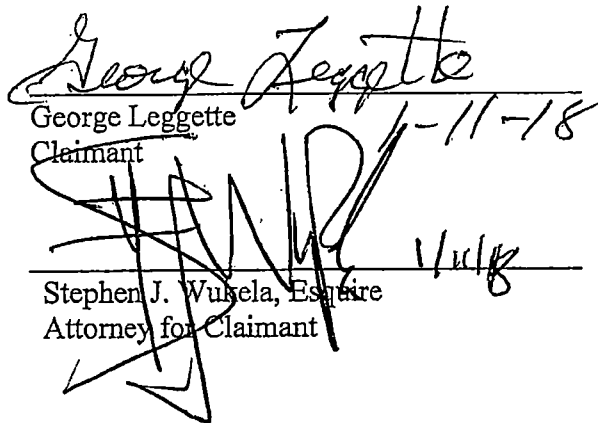 George Leggette
George Leggette 1-11-18
Claimant
1/11/18
Stephen J. Wukela, Esquire
Attorney for Claimant